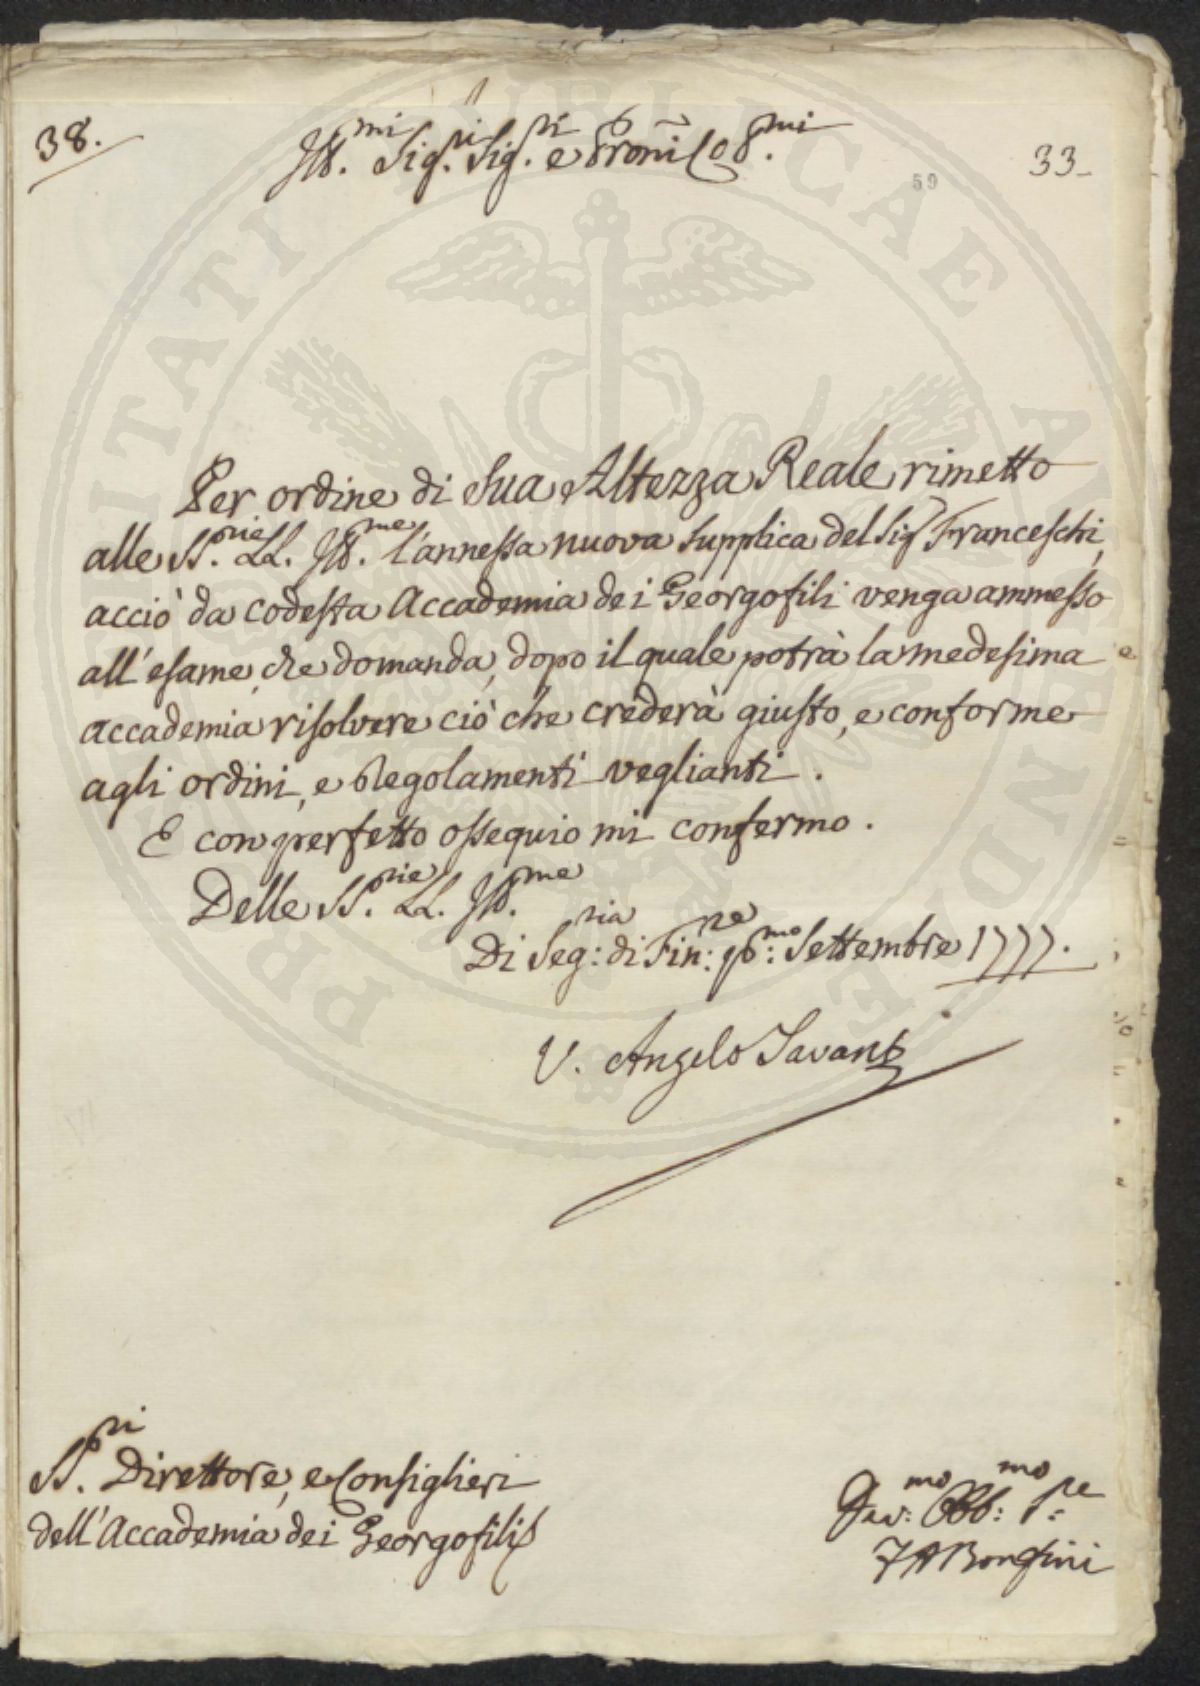 38.
Ill.mi Sig.ri Sig.ri e Proñi Col.mi
59
33
Per ordine di Sua Altezza Reale rimetto
alle SS.rie LL. Ill.me l'annessa nuova supplica del Sig.r Franceschi,
acciò da codesta Accademia dei Georgofili venga ammesso
all'esame, che domanda, dopo il quale potrà la medesima
Accademia risolvere ciò che crederà giusto, e conforme
agli ordini, e Regolamenti veglianti.
E con perfetto ossequio mi confermo.
Delle SS.rie LL. Ill.me
Di Seg:ria di Fin:ze p:mo Settembre 1777.
V. Angelo Tavanti
SS.ri Direttore, e Consiglieri
dell'Accademia dei Georgofili
mo Obb:mo S:re
PROSPERITATI PUBLICAE AUGENDAE